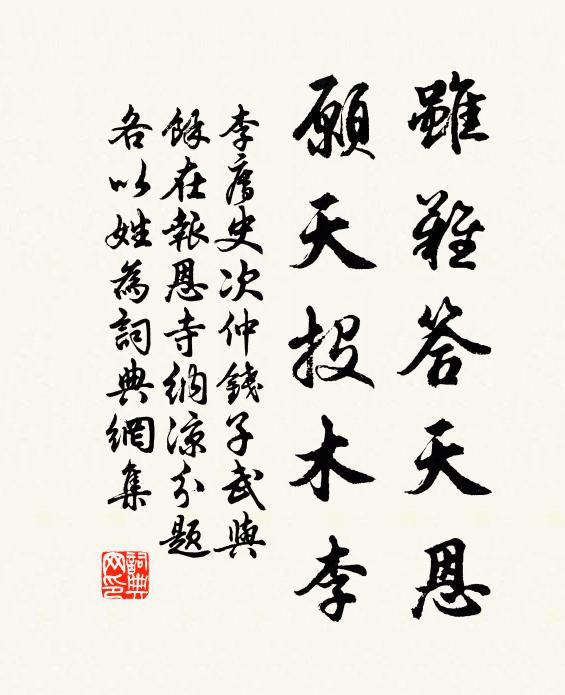 雖難答天恩
願天投木李
李舊史次仲錢子武與
餘在報恩寺納涼分題
各以姓為詞典網集
詞典網印